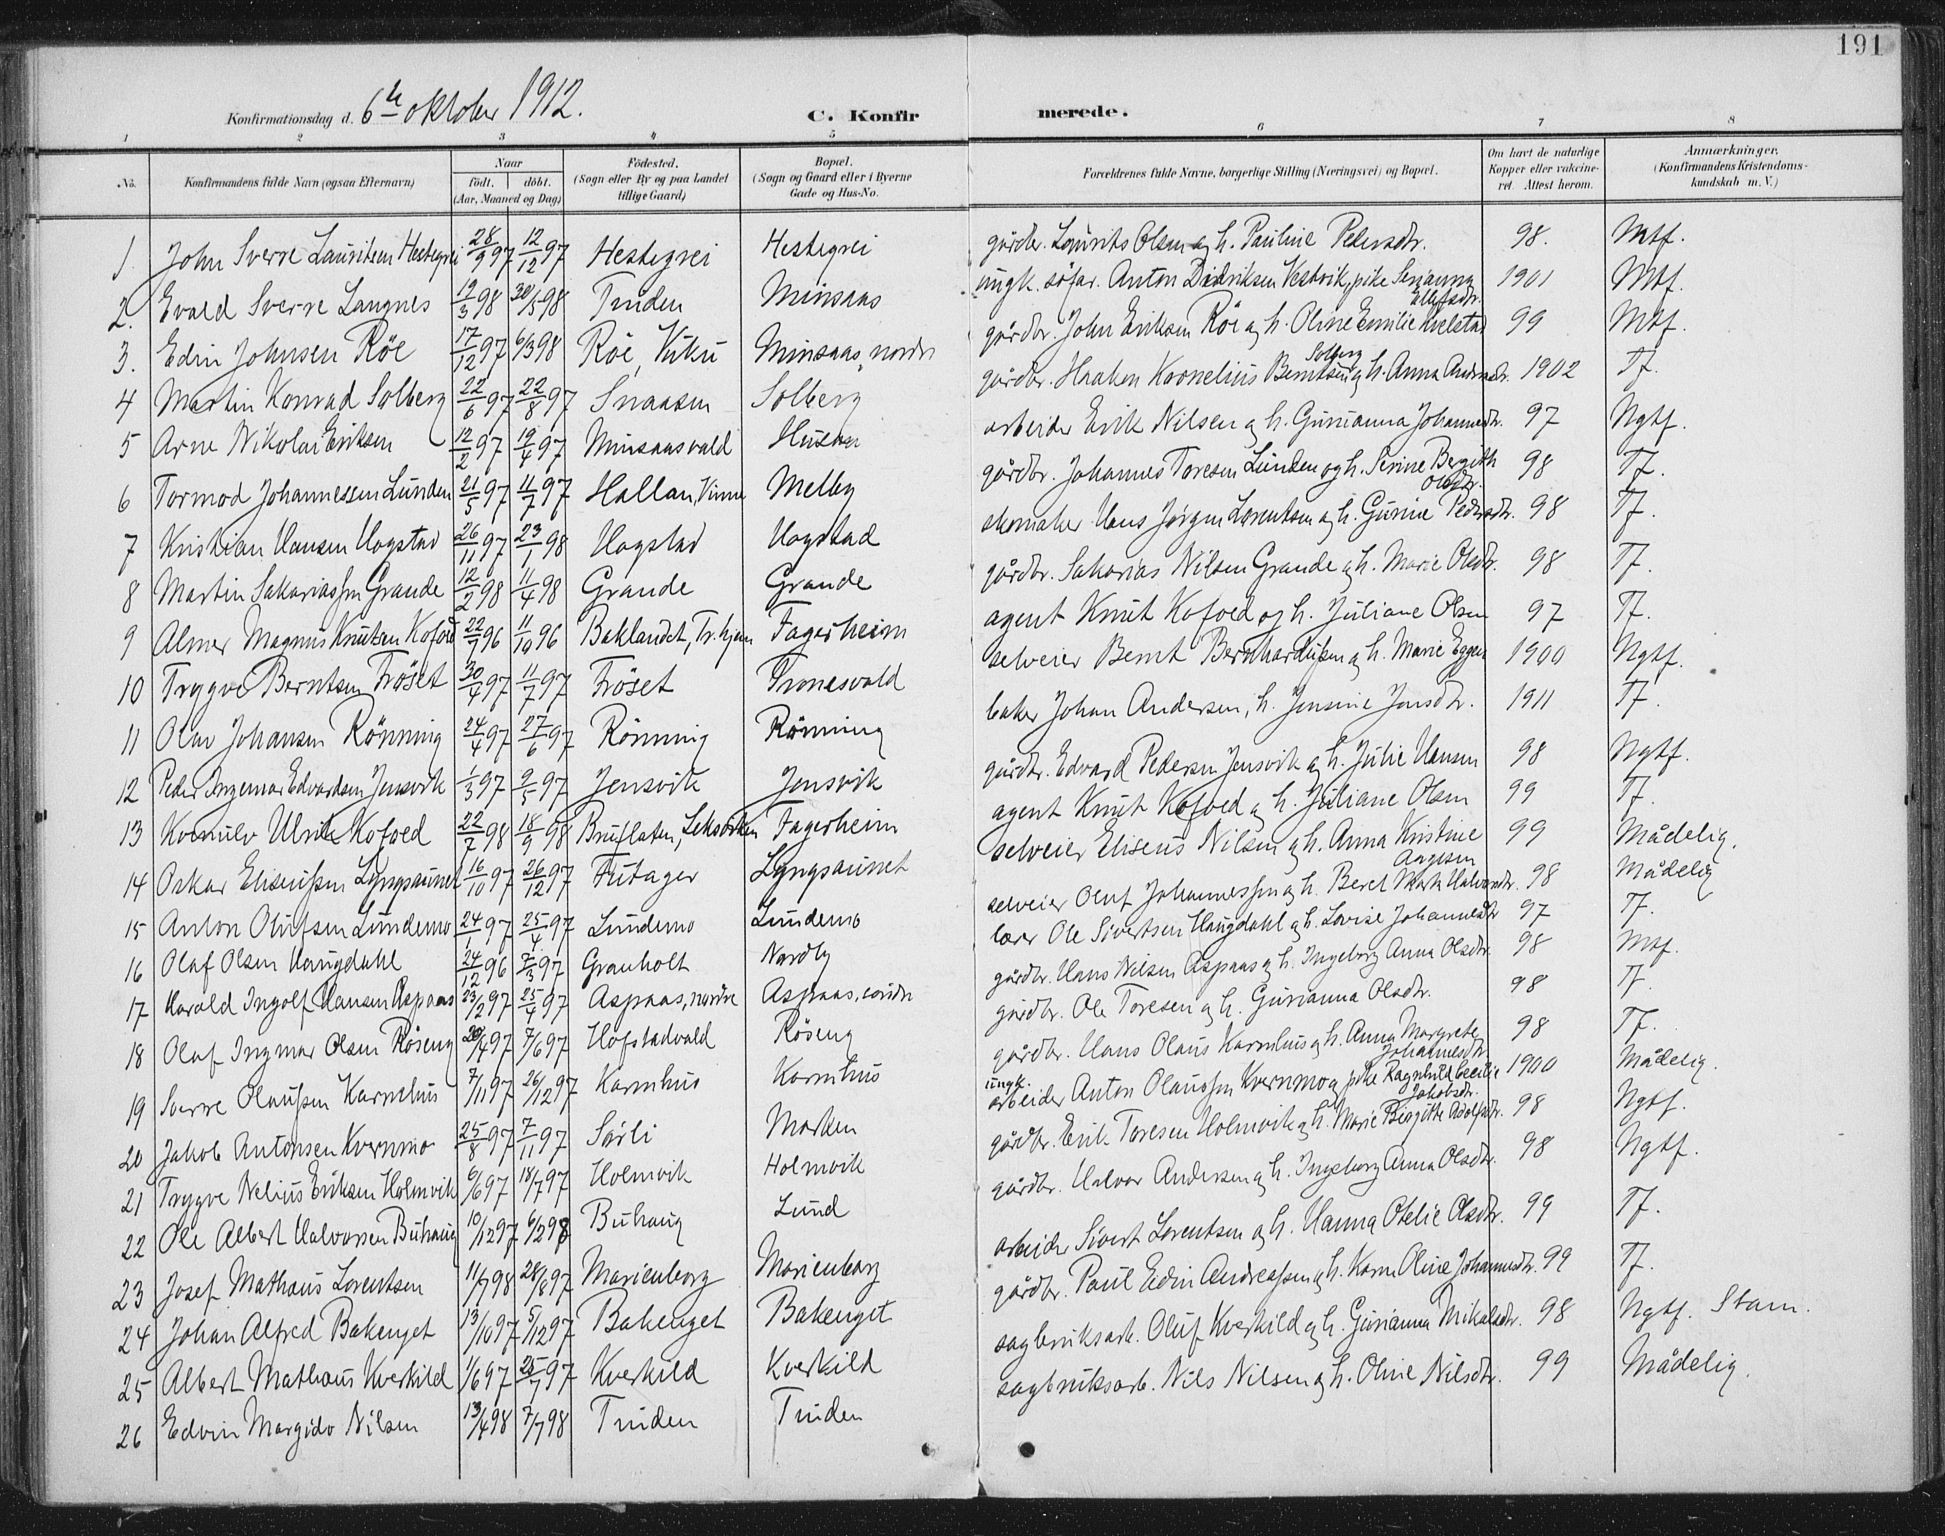 191
Konfirmationsdag d. 6te oktober 1912.
C. Konfirmerede.
1 2 3 4 5 6 7 8
No.
Konfirmandens fulde Navn (ogsaa Efternavn)
Naar
født. døbt.
(Aar, Maaned og Dag)
Fødested.
(Sogn eller By og paa Landet
tillige Gaard)
Bopæl.
(Sogn og Gaard eller i Byerne
Gade og Hus-No.
Forældrenes fulde Navne, borgerlige Stilling (Næringsvei) og Bopæl.
Om havt de naturlige
Kopper eller vakcine-
ret. Attest herom.
Anmærkninger.
(Konfirmandens Kristendoms-
kundskab m. V.)
1. John Sverre Lauritsen Hestegrei 28/9 97 12/12 97 Hestegrei Hestegrei gårdbr. Laurits Olsen og h. Pauline Petersdtr. 98. Mtf.
2. Evald Sverre Langnes 19/3 98 30/5 98 Tinden Minsaas ungk. söfar. Anton Didriksen Vestvik, pike Serianna Ellefsdtr. 1901 Mtf.
3. Edin Johnsen Röe 17/12 97 6/3 98 Röe, Vuku Minsaas, nordre gårdbr. John Eriksen Röe og h. Oline Emilie 99 Mtf.
4 Martin Konrad Solberg 22/6 97 22/8 97 Snaasen Solberg gårdbr. Haaken Kornelius Berntsen Solberg og h. Anna Andersdtr. 1902 Tf.
5 Arne Nikolai Eriksen 12/2 97 19/4 97 Minsaasvald Husan arbeider Erik Nilsen og h. Gurianna Johannesdtr. 97 Ngtf.
6 Tormod Johannessen Lunden 21/5 97 11/7 97 Hallan, Vinne Melby gårdbr. Johannes Toresen Lunden og h. Serine Bergith Olsdtr. 98 Tf.
7 Kristian Hansen Hogstad 26/11 97 23/1 98 Hogstad Hogstad skomaker Hans Jørgen Lorentsen og h. Gurine Pedersdtr. 98 Tf.
8 Martin Sakariassen Grande 12/2 98 11/4 98 Grande Grande gårdbr. Sakarias Nilsen Grande og h. Marie Olsdtr. 98 Tf.
9 Almer Magnus Knutsen Kofoed 22/7 96 11/10 96 Baklandet, Tr.hjem Fagerheim agent Knut Kofoed og h. Juliane Olsen 97 Tf.
10 Trygve Berntsen Fröset 30/4 97 11/7 97 Fröset Tronesvald selveier Bernt Bernhardussen og h. Marie Eggen 1900 Ngtf.
11 Olav Johansen Rönning 24/4 97 27/6 97 Rönning Rönning baker Johan Andersen, h. Jensine Jonsdtr. 1911 Tf.
12 Peder Ingemar Edvardsen Jensvik 1/3 97 9/5 97 Jensvik Jensvik gårdbr. Edvard Pedersen Jensvik og h. Julie Hansen 98 Ngtf.
13 Ulrik Kofoed 22/7 98 18/9 98 Bruflaten, Leksviken Fagerheim agent Knut Kofoed og h. Juliane Olsen 99 Tf.
14 Oskar Eliseussen Lyngsaunet 16/10 97 26/12 97 Futager Lyngsaunet selveier Eliseus Nilsen og h. Anna Kristine Aagesen 99 Mådelig.
15 Anton Olufsen Lundemo 24/1 97 25/4 97 Lundemo Lundemo selveier Oluf Johannessen og h. Beret Marta Halvorsdtr. 98 Mådelig
16 Olaf Olsen Haugdahl 24/12 96 7/3 97 Granholt Nordby lærer Ole Sivertsen Haugdahl og h. Lovise Johannesdtr. 97 Tf.
17 Harald Ingolf Hansen Aspaas 23/12 97 25/4 97 Aspaas, nordre Aspaas, söndre gårdbr. Hans Nilsen Aspaas og h. Ingeborg Anna Olsdtr. 98 Mtf.
18 Olaf Ingmar Olsen Röseng 20/4 97 7/6 97 Hofstadvald Röseng gårdbr. Ole Toresen og h. Gurianna Olsdtr. 98 Tf.
19 Sverre Olaussen Karmhus 7/11 97 26/12 97 Karmhus Karmhus gårdbr. Hans Olaus Karmhus og h. Anna Margrete Johannesdtr. 98 Tf.
20 Jakob Antonsen Kvernmo 25/8 97 7/11 97 Sörli Marken ungk. arbeider Anton Olaussen Kvernmo og pike Ragnhild Cecilie Jakobsdtr. 1900 Mådelig.
21 Trygve Nelius Eriksen Holmvik 6/6 97 18/7 97 Holmvik Holmvik gårdbr. Erik Toresen Holmvik og h. Marie Birgitte Adolfsdtr. 98 Ngtf.
22 Ole Albert Halvorsen Buhaug 10/12 97 6/2 98 Buhaug Lund gårdbr. Halvor Andersen og h. Ingeborg Anna Olsdtr. 98 Ngtf.
23 Josef Mathæus Lorentsen 11/7 98 28/8 97 Marienborg Marienborg arbeider Sivert Lorentsen og h. Hanna Otelie Olsdtr. 99 Tf.
24 Johan Alfred Bakenget 13/10 97 5/12 97 Bakenget Bakenget gårdbr. Paul Edin Andreassen og h. Karen Oline Johannesdtr. 99 Tf.
25 Albert Mathæus Kverkild 1/6 97 25/7 97 Kverkild Kverkild sagbruksarb. Oluf Kverkild og h. Gurianna Mikalsdtr. 98 Ngtf. Stam.
26 Edvin Margido Nilsen 13/4 98 7/7 98 Tinden Tinden sagbruksarb. Nils Nilsen og h. Oline Nilsdtr. 99 Mådelig.